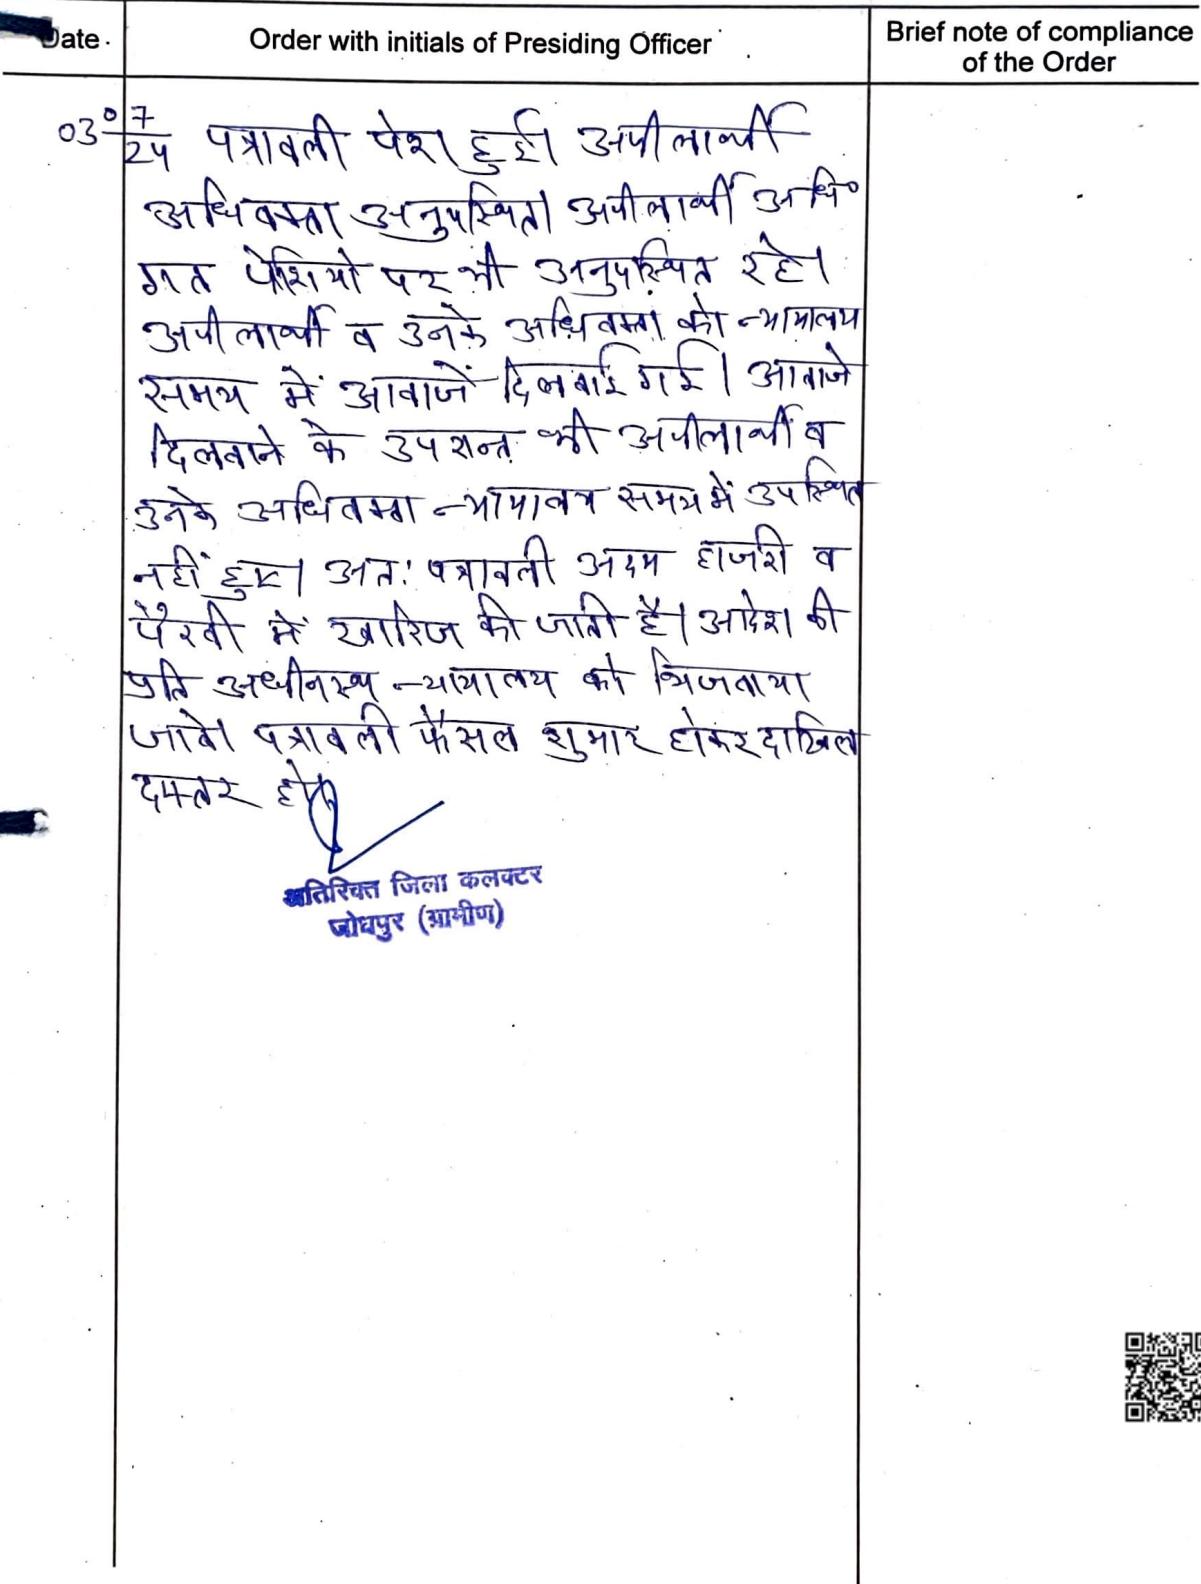 Date.
Order with initials of Presiding Officer
Brief note of compliance
of the Order
03°7/24 पत्रावली पेश हुई। अपीलार्थी
अधिवक्ता अनुपस्थित। अपीलार्थी अधि०
गत पेशियो पर भी अनुपस्थित रहे।
अपीलार्थी व उनके अधिवक्ता को न्यायालय
समय में आवाजें दिलवाई गई। आवाजे
दिलवाने के उपरान्त भी अपीलार्थी व
उनके अधिवक्ता न्यायालय समय में उपस्थित
नहीं हुए। अतः पत्रावली अदम हाजरी व
पैरवी में खारिज की जाती है। आदेश की
प्रति अधीनस्थ न्यायालय को भिजवाया
जावे। पत्रावली फैसल शुमार होकर दाखिल
दफ्तर हो।
अतिरिक्त जिला कलक्टर
जोधपुर (ग्रामीण)